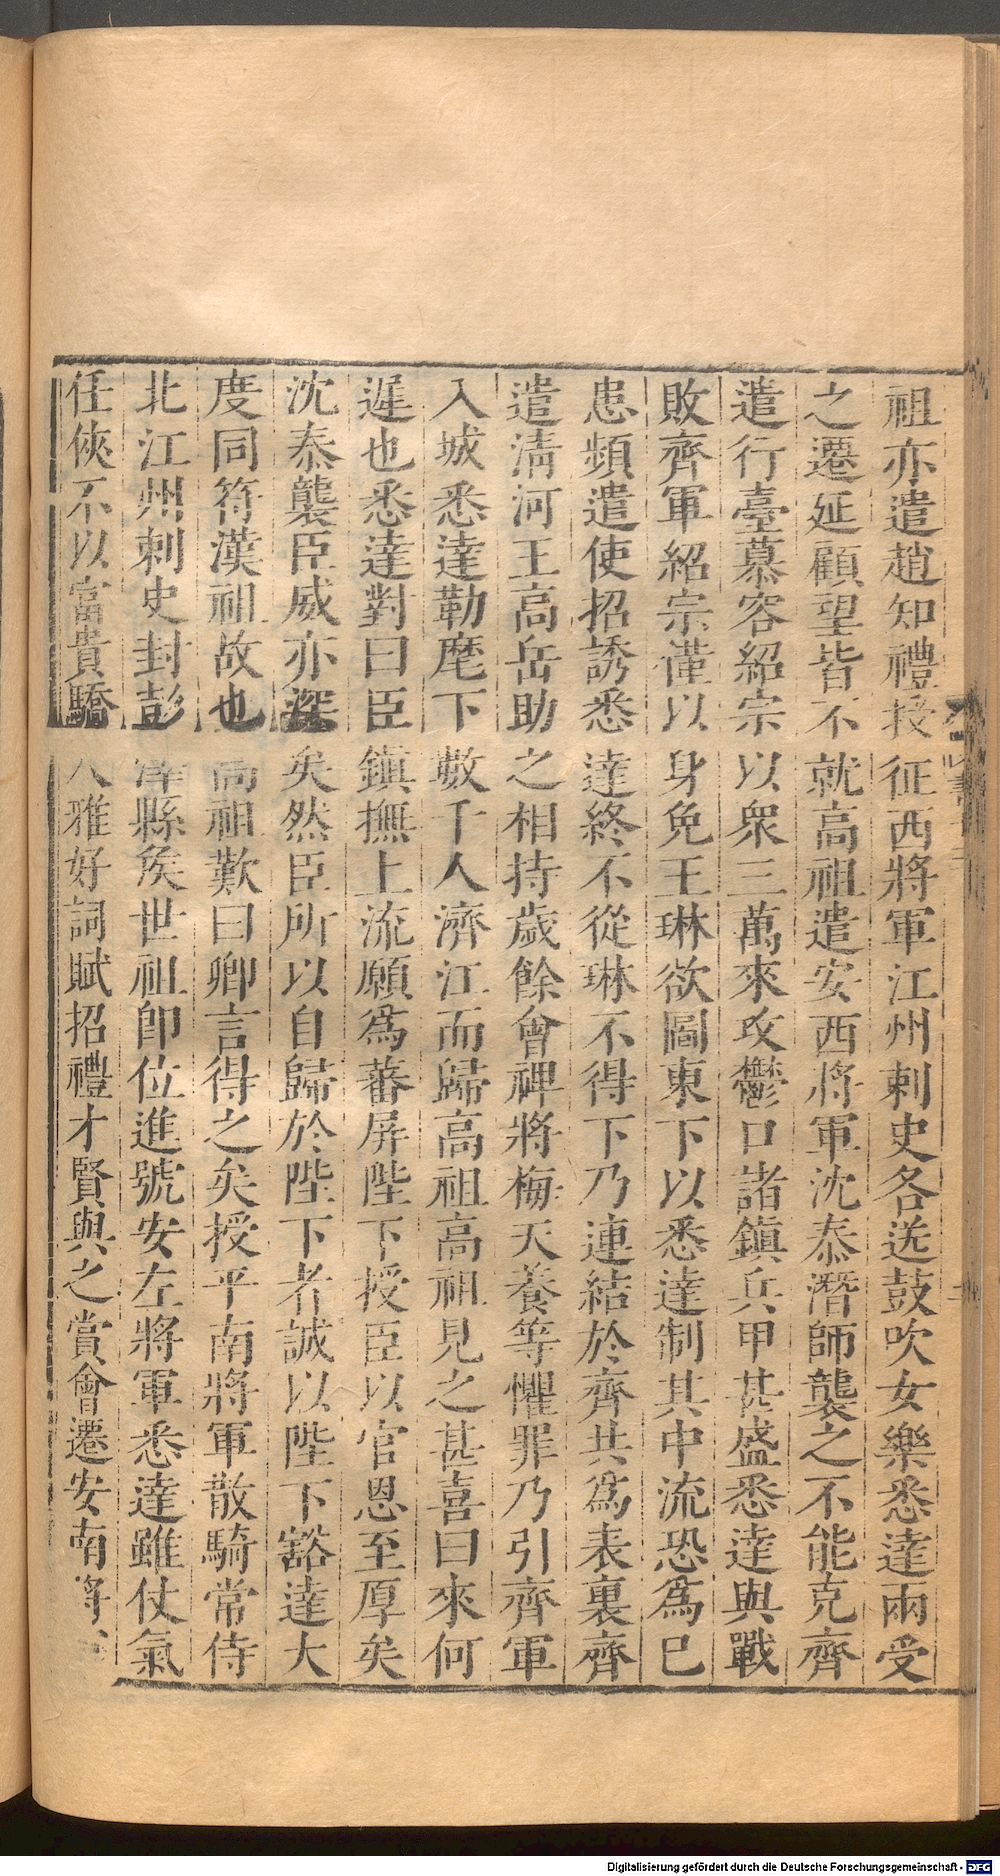 祖亦遣趙知禮授征西將軍江州剌史各送鼓吹女樂悉達兩受
之遷延顧望皆不就高祖遣安西將軍沈泰潛師襲之不能克齊
遣行臺慕容紹宗以衆三萬來攻鬱口諸鎮兵甲甚盛悉達與戰
敗齊軍紹宗僅以身免王琳欲圖東下以悉達制其中流恐爲已
患頻遣使招誘悉達終不從琳不得下乃連結於齊共爲表裏齊
遣清河王高岳助之相持歲餘會裨將梅天養等懼罪乃引齊軍
入城悉達勒麾下數千人濟江而歸高祖高祖見之甚喜曰來何
遲也悉達對曰臣鎮撫上流願爲蕃屏陛下授臣以官恩至厚矣
沈泰襲臣威亦深矣然臣所以自歸於陛下者誠以陛下豁達大
度同符漢祖故也高祖歎曰卿言得之矣授平南將軍散騎常侍
北江州剌史封彭澤縣矦世祖卽位進號安左將軍悉達雖仗氣
任俠不以富貴驕人雅好詞賦招禮才賢與之賞會遷安南將
Digitalisierung gefördert durch die Deutsche Forschungsgemeinschaft - DFG